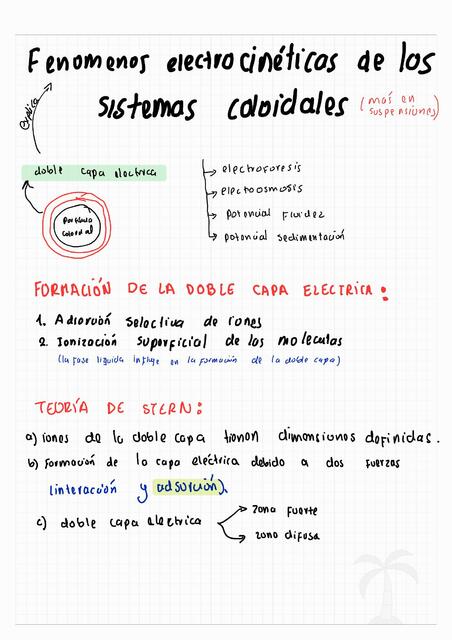 Fenomenos electrocinéticos de los
sistemas coloidales (más en
suspensiones)
explica
doble capa electrica
Partícula
coloidal
electroforesis
electroosmosis
Potencial Fluidez
potencial sedimentación
FORMACIÓN DE LA DOBLE CAPA ELECTRICA:
1. Adsorción selectiva de iones
2. Ionización superficial de las moleculas
(la fase liquida influye en la formación de la doble capa)
TEORÍA DE STERN:
a) iones de la doble capa tienen dimensiones definidas.
b) Formación de la capa eléctrica debido a dos fuerzas
(interacción y adsorción).
c) doble capa electrica
zona fuerte
zona difusa